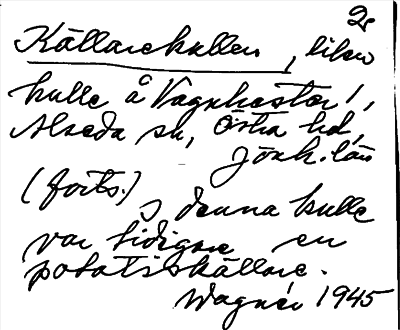 2.
Källarekullen, liten
kulle å Vagnhester 1,
Alseda sn, Östra hd,
Jönk. län
(forts.)
I denna kulle
var tidigare en
potatiskällare.
Wagnér 1945